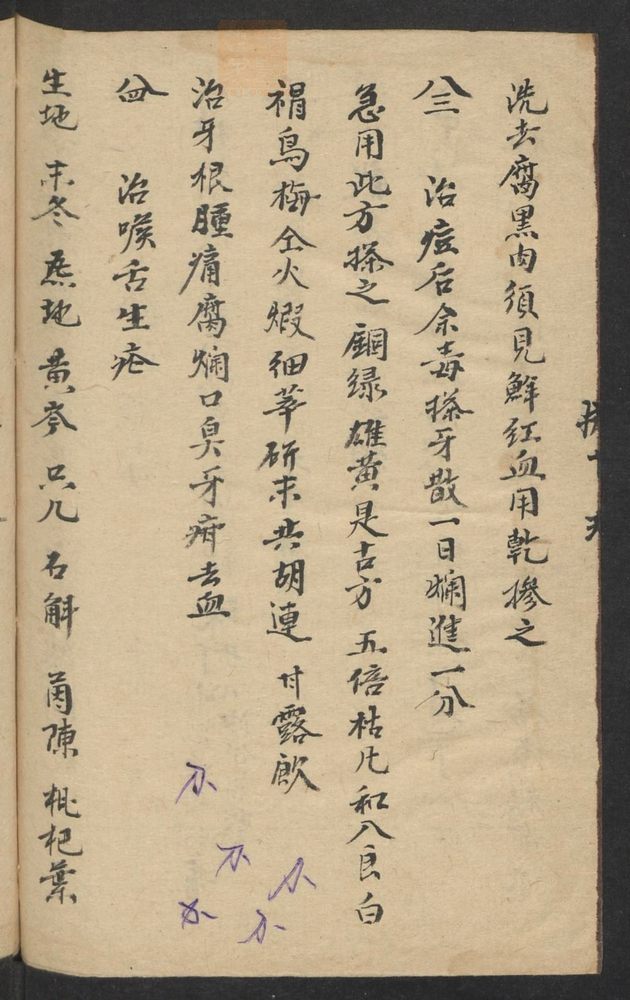 洗去腐黑肉須見鮮紅血用乾摻之
八三　治痘后余毒搽牙散一日爛進一分
急用此方搽之　銅绿　雄黄是古方　五倍枯凡和入良白
褐烏梅仝火煅细莘研末共胡連　甘露飲
治牙根腫痛腐爛口臭牙疳去血
治喉舌生疮
生地　末冬　熟地　黄芩　只几　石斛　茵陳　枇杷葉